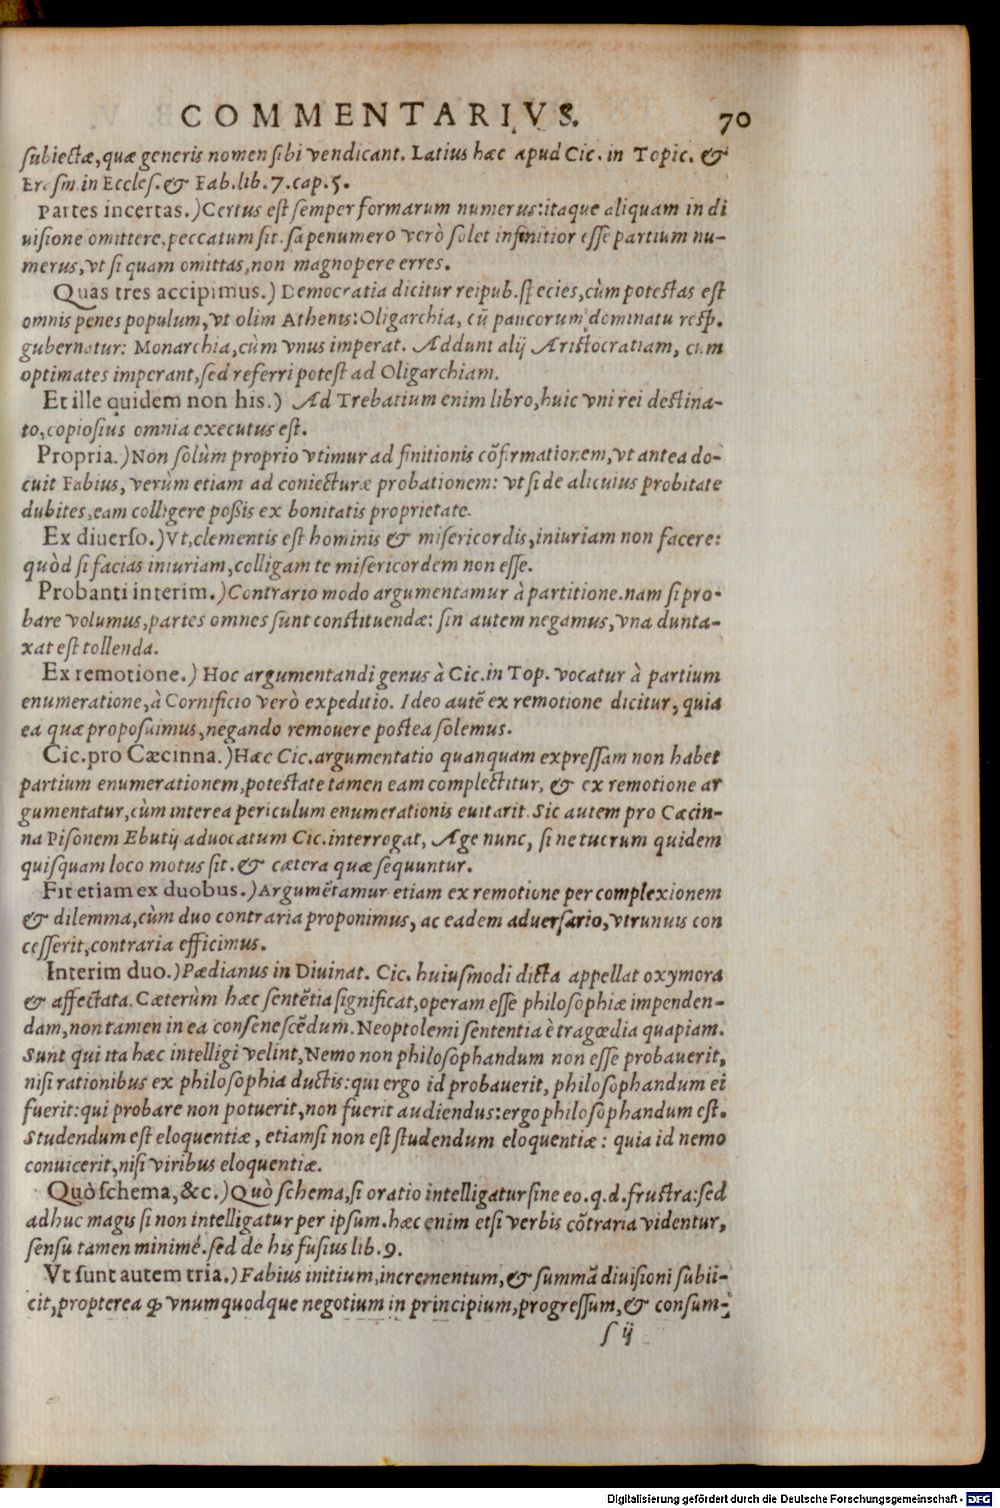 COMMENTARIVS. 70
subiectæ, quæ generis nomen sibi vendicant. Latius hæc apud Cic. in Topic. &
Erasm in Eccles. & Fab. lib. 7. cap. 5.
Partes incertas.) Certus est semper formarum numerus: itaque aliquam in di
uisione omittere, peccatum sit. sæpenumero verò solet infinitior esse partium nu-
merus, vt si quam omittas, non magnopere erres.
Quas tres accipimus.) Democratia dicitur reipub. species, cùm potestas est
omnis penes populum, vt olim Athenis: Oligarchia, cū paucorum dominatu resp.
gubernatur: Monarchia, cùm vnus imperat. Addunt alij Aristocratiam, cum
optimates imperant, sed referri potest ad Oligarchiam.
Et ille quidem non his.) Ad Trebatium enim libro, huic vni rei destina-
to, copiosius omnia executus est.
Propria.) Non solùm proprio vtimur ad finitionis cōfirmationem, vt antea do-
cuit Fabius, verùm etiam ad coniecturæ probationem: vt si de alicuius probitate
dubites, eam colligere poßis ex bonitatis proprietate.
Ex diuerso.) Vt, clementis est hominis & misericordis, iniuriam non facere:
quòd si facias iniuriam, colligam te misericordem non esse.
Probanti interim.) Contrario modo argumentamur à partitione. nam si pro-
bare volumus, partes omnes sunt constituendæ: sin autem negamus, vna dunta-
xat est tollenda.
Ex remotione.) Hoc argumentandi genus à Cic. in Top. vocatur à partium
enumeratione, à Cornificio verò expeditio. Ideo autē ex remotione dicitur, quia
ea quæ proposuimus, negando remouere postea solemus.
Cic. pro Cæcinna.) Hæc Cic. argumentatio quanquam expressam non habet
partium enumerationem, potestate tamen eam complectitur, & ex remotione ar
gumentatur, cùm interea periculum enumerationis euitarit. Sic autem pro Cæcin-
na Pisonem Ebutij aduocatum Cic. interrogat, Age nunc, si ne tucrum quidem
quisquam loco motus sit. & cætera quæ sequuntur.
Fit etiam ex duobus.) Argumētamur etiam ex remotione per complexionem
& dilemma, cùm duo contraria proponimus, ac eadem aduersario, vtrunuis con
cesserit, contraria efficimus.
Interim duo.) Pædianus in Diuinat. Cic. huiusmodi dicta appellat oxymora
& affectata. Cæterùm hæc sentētia significat, operam esse philosophiæ impenden-
dam, non tamen in ea consenescēdum. Neoptolemi sententia è tragœdia quapiam.
Sunt qui ita hæc intelligi velint, Nemo non philosophandum non esse probauerit,
nisi rationibus ex philosophia ductis: qui ergo id probauerit, philosophandum ei
fuerit: qui probare non potuerit, non fuerit audiendus: ergo philosophandum est.
Studendum est eloquentiæ, etiamsi non est studendum eloquentiæ: quia id nemo
conuicerit, nisi viribus eloquentiæ.
Quò schema, &c.) Quò schema, si oratio intelligatur sine eo. q. d. frustra: sed
adhuc magis si non intelligatur per ipsum. hæc enim etsi verbis cōtraria videntur,
sensu tamen minimé. sed de his fusius lib. 9.
Vt sunt autem tria.) Fabius initium, incrementum, & summā diuisioni subii-
cit, propterea ꝙ vnumquodque negotium in principium, progressum, & consum-
s ij
Digitalisierung gefördert durch die Deutsche Forschungsgemeinschaft - DFG